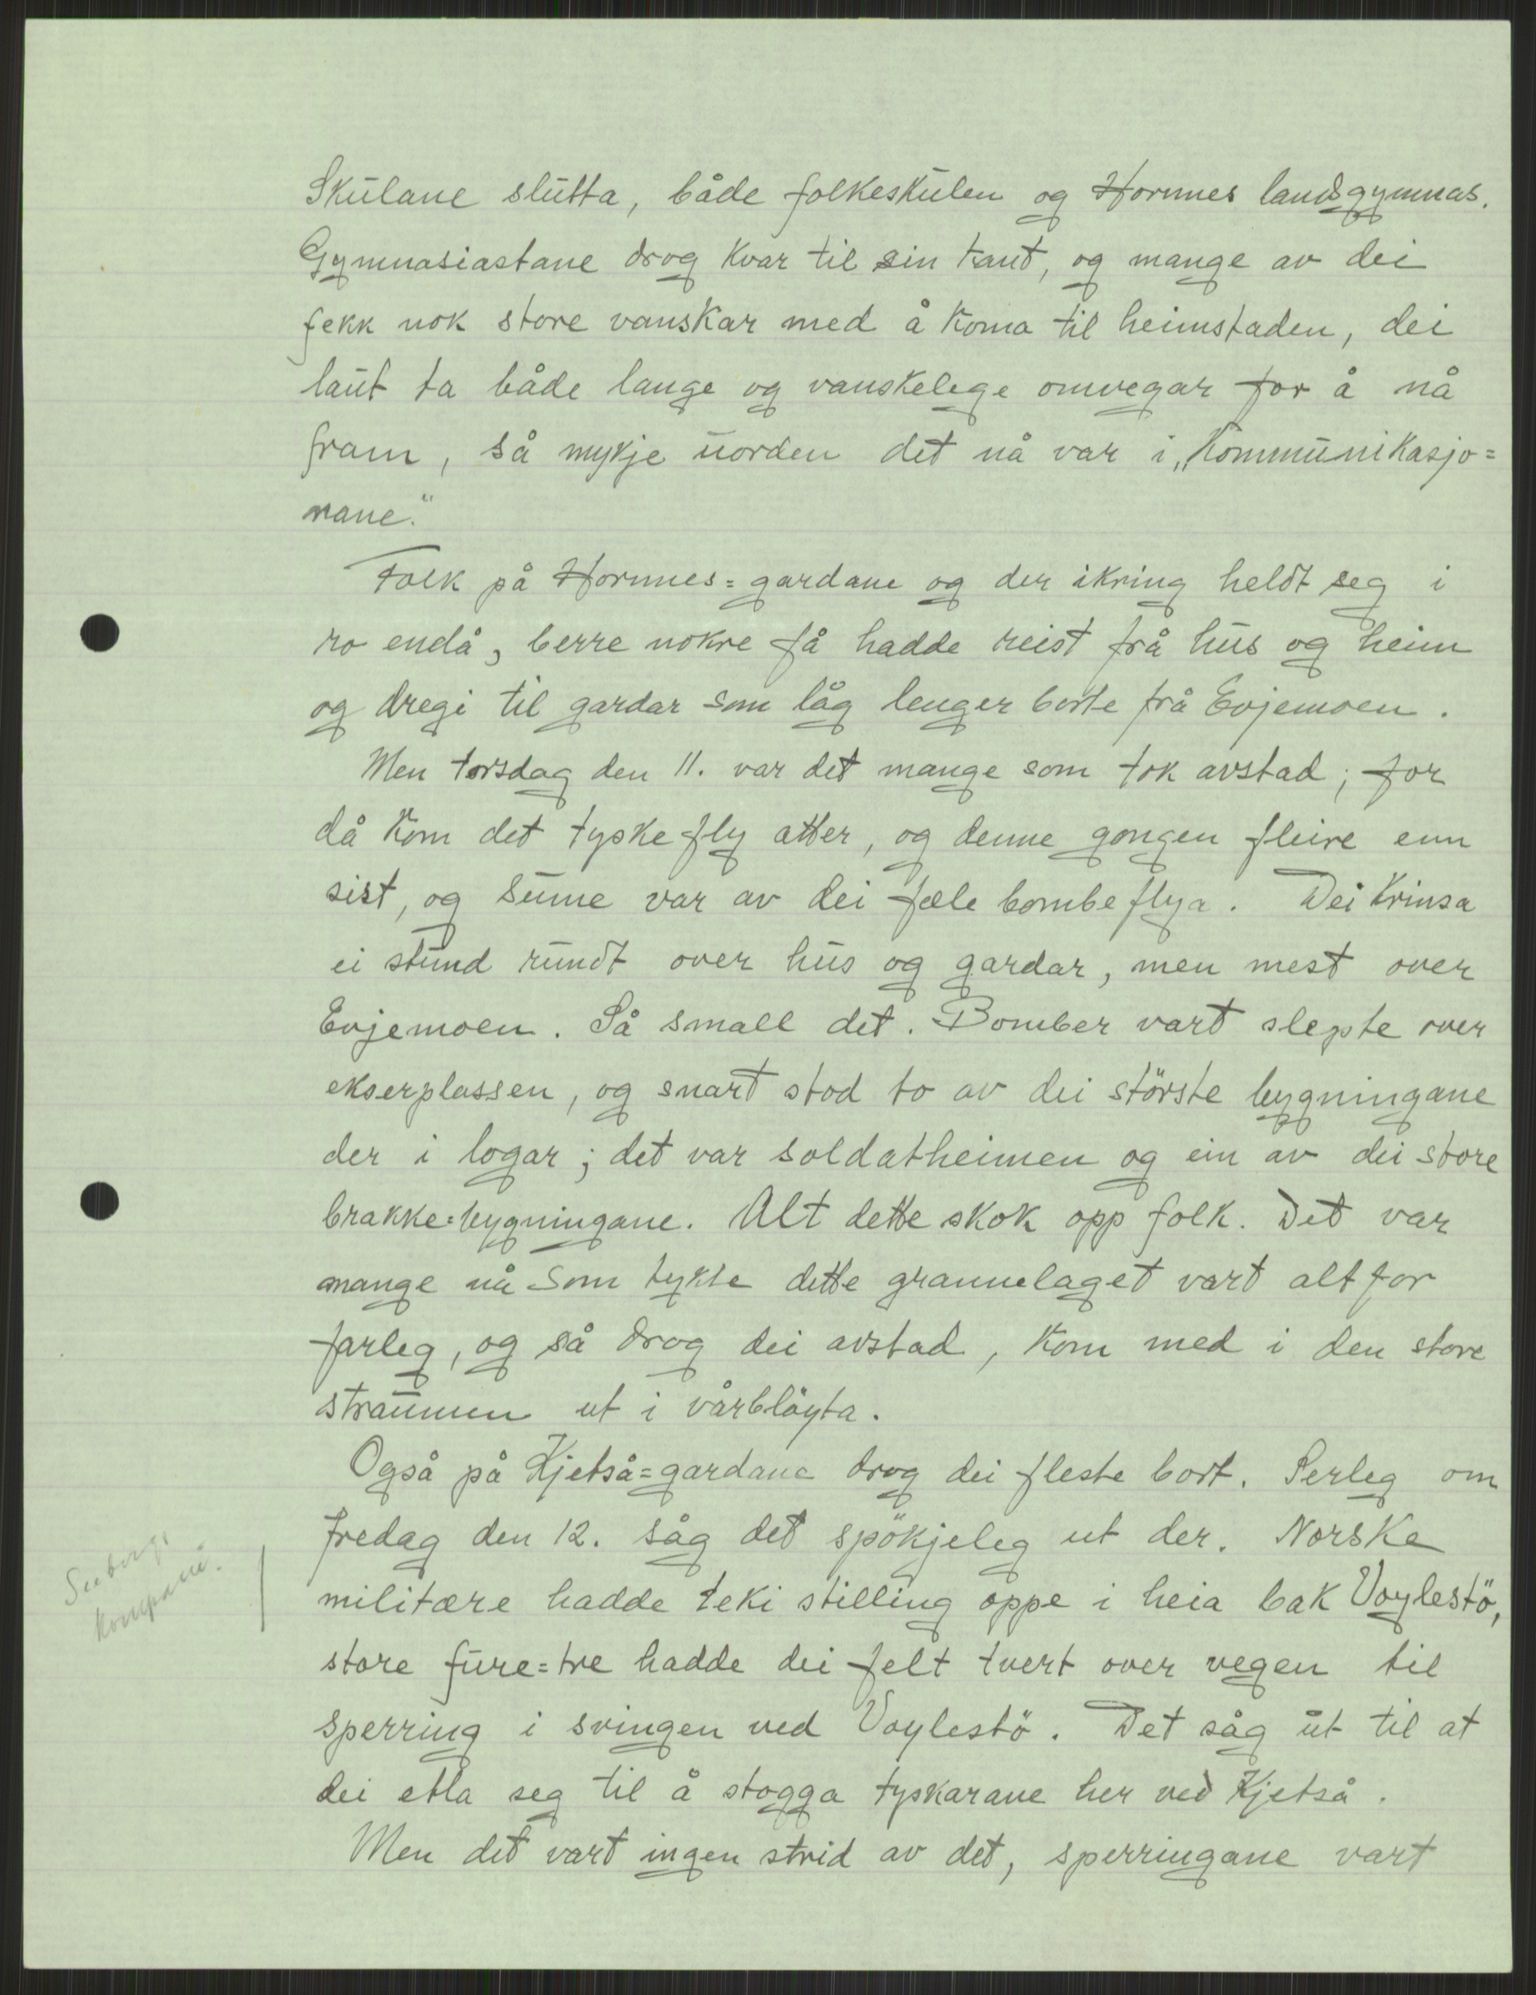 Skulane slutta, både folkeskulen og Hornnes landsgymnas.
Gymnasiastane drog kvar til sin kant, og mange av dei
fekk nok store vanskar med å koma til heimstaden, dei
laut ta både lange og vanskelege omvegar for å nå
fram, så mykje uorden det nå var i „kommunikasjo=
nane."
Folk på Hornnes=gardane og der ikring heldt seg i
ro endå, berre nokre få hadde reist frå hus og heim
og dregi til gardar som låg lenger borte frå Evjemoen.
Men torsdag den 11. var det mange som tok avstad; for
då kom det tyske fly atter, og denne gongen fleire enn
sist, og sume var av dei fæle bombeflya. Dei krinsa
ei stund rundt over hus og gardar, men mest over
Evjemoen. Så small det. Bomber vart slepte over
ekserplassen, og snart stod to av dei störste bygningane
der i logar; det var soldatheimen og ein av dei store
brakke=bygningane. Alt dette skok opp folk. Det var
mange nå som tykte dette grannelaget vart alt for
farleg, og så drog dei avstad, kom med i den store
straumen ut i vårblöyta.
Også på Kjetså=gardane drog dei fleste bort. Serleg om
fredag den 12. såg det spökjeleg ut der. Norske
militære hadde teki stilling oppe i heia bak Voylestö,
store fure=tre hadde dei felt tvert over vegen til
sperring i svingen ved Voylestö. Det såg ut til at
dei etla seg til å stogga tyskarane her ved Kjetså.
Men det vart ingen strid av det, sperringane vart
kompani.